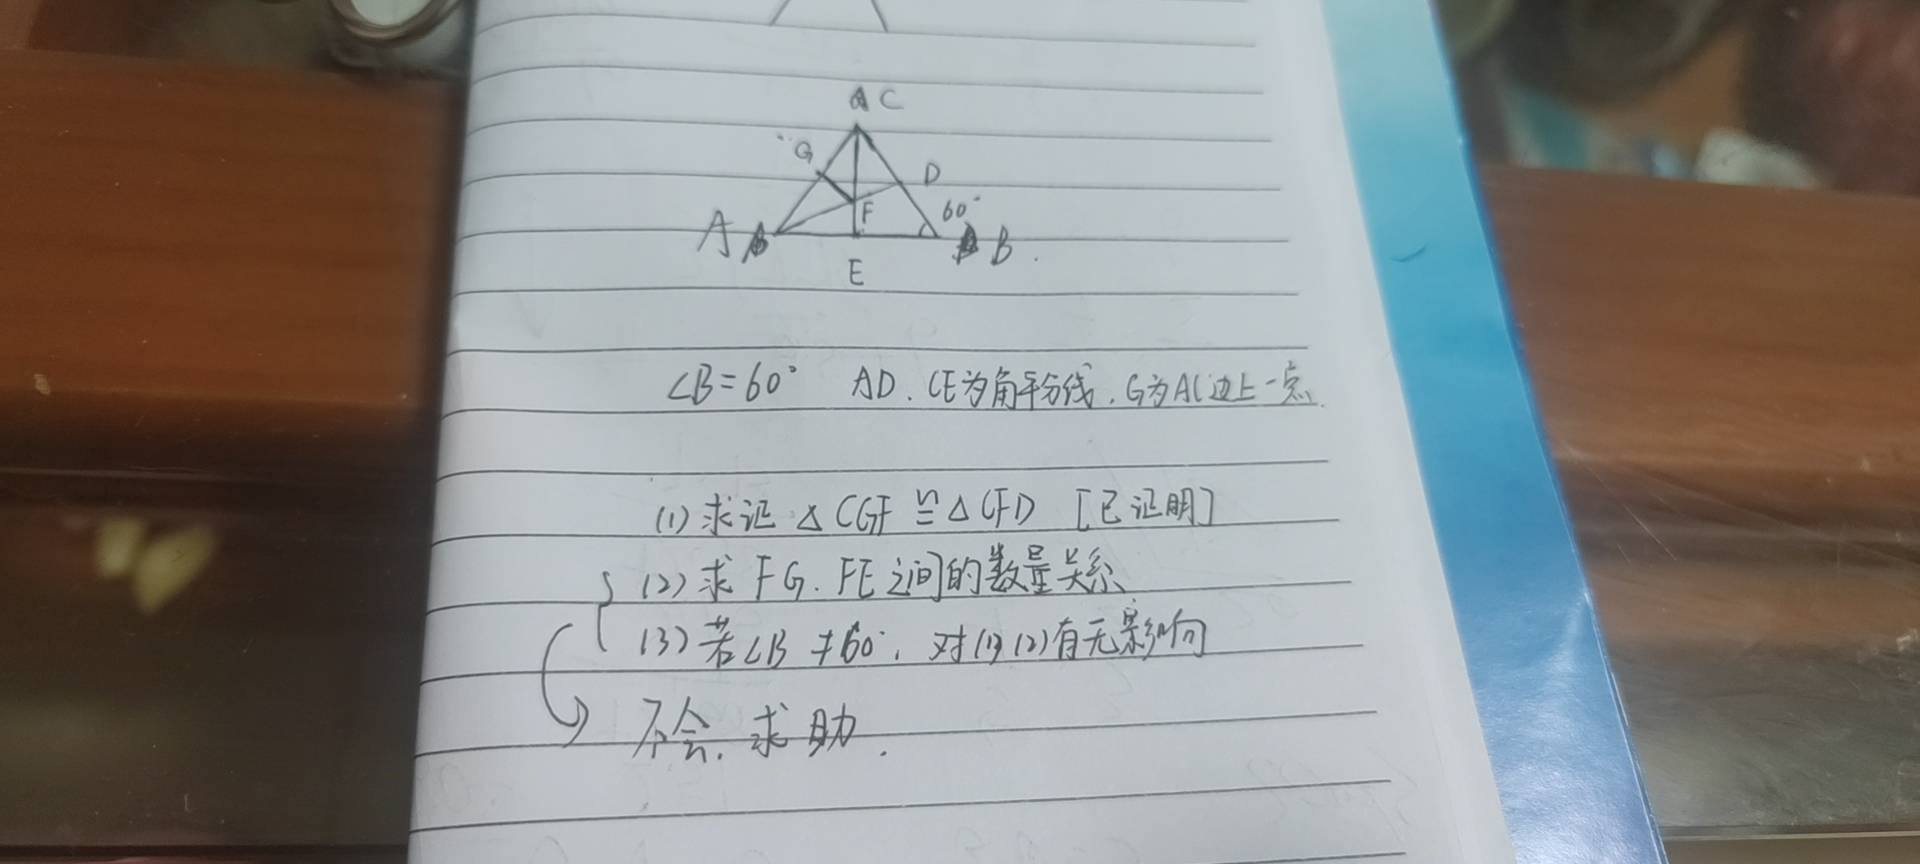 C
G
D
F
60°
A
B
E
∠B=60° AD、CE为角平分线,G为AC边上一点.
(1)求证 △CGF≌△CFD [已证明]
(2)求 FG、FE之间的数量关系
(3)若∠B≠60°,对(1)(2)有无影响
不会,求助.